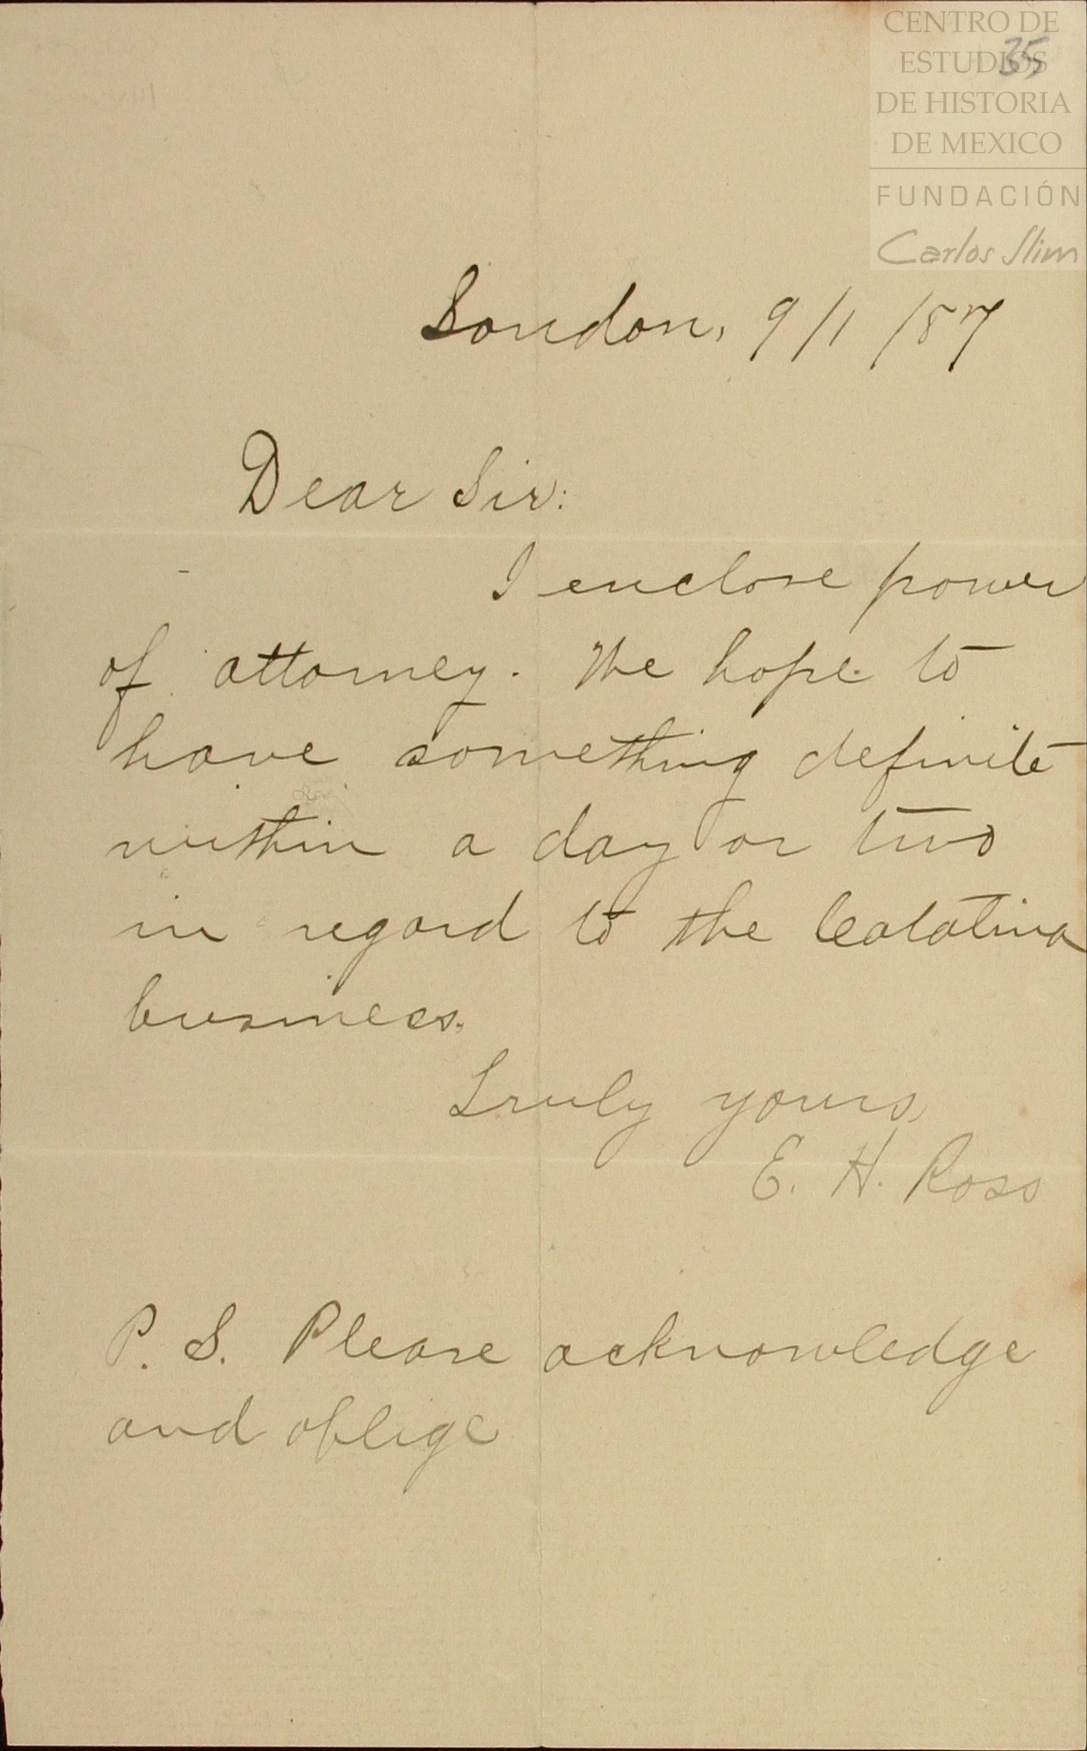 CENTRO DE
ESTUDIOS
DE HISTORIA
DE MEXICO
FUNDACIÓN
Carlos Slim
35
London, 9/1/87
Dear Sir:
I enclose power
of attorney. We hope to
have something definite
within a day or two
in regard to the Catalina
business.
Truly yours,
E. H. Ross
P. S. Please acknowledge
and oblige